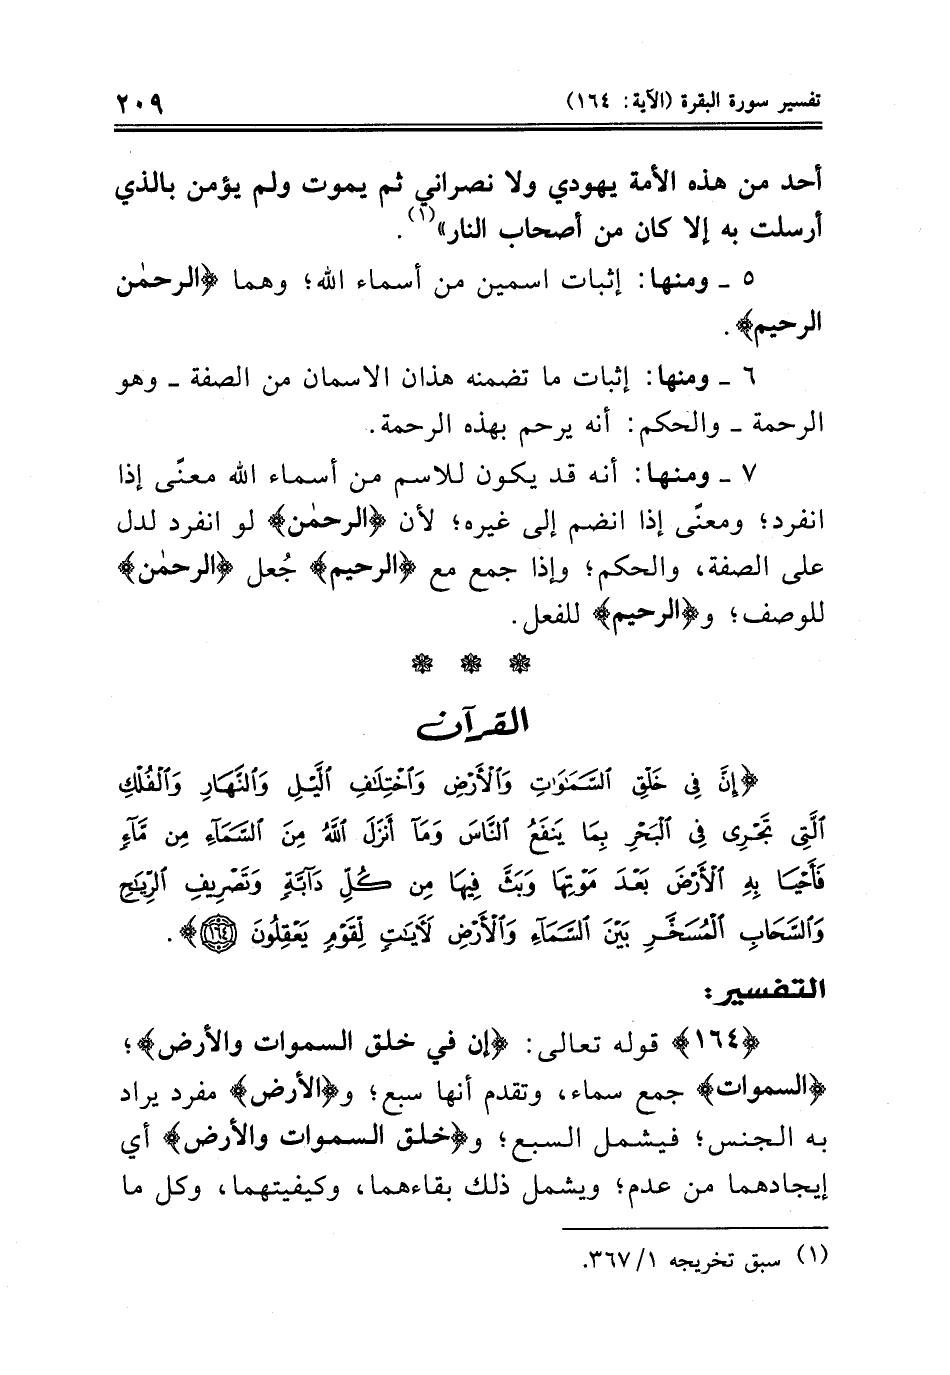 تفسير سورة البقرة (الآية: ١٦٤) ٢٠٩
أحد من هذه الأمة يهودي ولا نصراني ثم يموت ولم يؤمن بالذي
أرسلت به إلا كان من أصحاب النار»(١).
٥ ـ ومنها: إثبات اسمين من أسماء الله؛ وهما ﴿الرحمٰن
الرحيم﴾.
٦ ـ ومنها: إثبات ما تضمنه هذان الاسمان من الصفة ـ وهو
الرحمة ـ والحكم: أنه يرحم بهذه الرحمة.
٧ ـ ومنها: أنه قد يكون للاسم من أسماء الله معنًى إذا
انفرد؛ ومعنًى إذا انضم إلى غيره؛ لأن ﴿الرحمٰن﴾ لو انفرد لدل
على الصفة، والحكم؛ وإذا جمع مع ﴿الرحيم﴾ جُعل ﴿الرحمٰن﴾
للوصف؛ و﴿الرحيم﴾ للفعل.
القرآن
﴿إِنَّ فِي خَلْقِ ٱلسَّمَٰوَٰتِ وَٱلْأَرْضِ وَٱخْتِلَٰفِ ٱلَّيْلِ وَٱلنَّهَارِ وَٱلْفُلْكِ
ٱلَّتِي تَجْرِى فِي ٱلْبَحْرِ بِمَا يَنفَعُ ٱلنَّاسَ وَمَآ أَنزَلَ ٱللَّهُ مِنَ ٱلسَّمَآءِ مِن مَّآءٍ
فَأَحْيَا بِهِ ٱلْأَرْضَ بَعْدَ مَوْتِهَا وَبَثَّ فِيهَا مِن كُلِّ دَآبَّةٍ وَتَصْرِيفِ ٱلرِّيَٰحِ
وَٱلسَّحَابِ ٱلْمُسَخَّرِ بَيْنَ ٱلسَّمَآءِ وَٱلْأَرْضِ لَءَايَٰتٍ لِّقَوْمٍ يَعْقِلُونَ ١٦٤﴾.
التفسير:
﴿١٦٤﴾ قوله تعالى: ﴿إن في خلق السموات والأرض﴾؛
﴿السموات﴾ جمع سماء، وتقدم أنها سبع؛ و﴿الأرض﴾ مفرد يراد
به الجنس؛ فيشمل السبع؛ و﴿خلق السموات والأرض﴾ أي
إيجادهما من عدم؛ ويشمل ذلك بقاءهما، وكيفيتهما، وكل ما
(١) سبق تخريجه ١/ ٣٦٧.